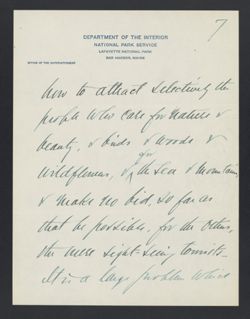 7
DEPARTMENT OF THE INTERIOR
NATIONAL PARK SERVICE
LAFAYETTE NATIONAL PARK
BAR HARBOR, MAINE
OFFICE OF THE SUPERINTENDENT
how to attract selectively the
people who care for nature &
beauty, & birds & woods &
wildflowers, & for the Sea & Mountains
& make no bid, so far as
that be possible, for the others,
the mere sight-seeing tourists.
It is a large problem which